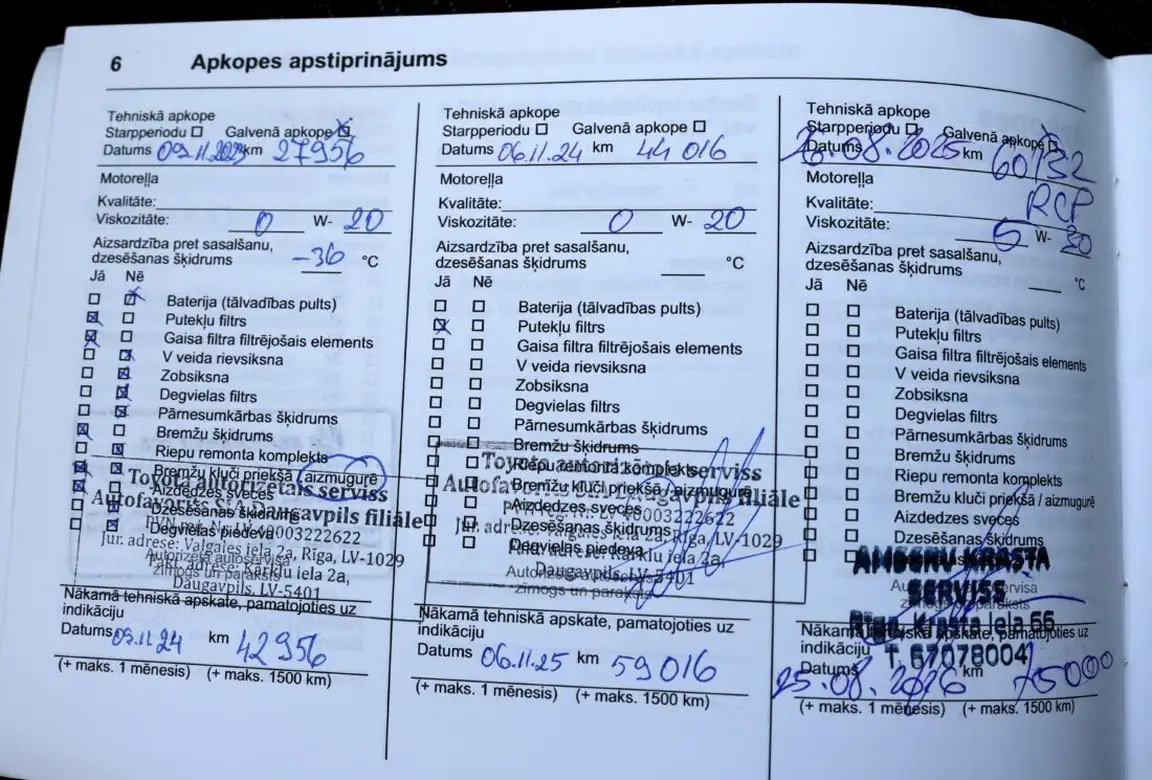 6 Apkopes apstiprinājums
Tehniskā apkope
Starpperiodu Galvenā apkope
Datums 09.11.2023 km 27956
Motoreļļa
Kvalitāte:
Viskozitāte: 0 W- 20
Aizsardzība pret sasalšanu,
dzesēšanas šķidrums -36 °C
Jā Nē
Baterija (tālvadības pults)
Putekļu filtrs
Gaisa filtra filtrējošais elements
V veida rievsiksna
Zobsiksna
Degvielas filtrs
Pārnesumkārbas šķidrums
Bremžu šķidrums
Riepu remonta komplekts
Bremžu kluči priekšā / aizmugurē
Toyota autorizētais serviss
Aizdedzes sveces
Autofavorīts SIA Daugavpils filiāle
Dzesēšanas šķidrums
PVN reģ. Nr. LV 40003222622
Degvielas piedeva
Jur. adrese: Valgales iela 2a, Rīga, LV-1029
Autorizētā autoservisa
Fakt. adrese: Kārklu iela 2a,
zīmogs un paraksts
Daugavpils, LV-5401
Nākamā tehniskā apskate, pamatojoties uz
indikāciju
Datums 09.11.24 km 42956
(+ maks. 1 mēnesis) (+ maks. 1500 km)
Tehniskā apkope
Starpperiodu Galvenā apkope
Datums 06.11.24 km 44 016
Motoreļļa
Kvalitāte:
Viskozitāte: 0 W- 20
Aizsardzība pret sasalšanu,
dzesēšanas šķidrums °C
Jā Nē
Baterija (tālvadības pults)
Putekļu filtrs
Gaisa filtra filtrējošais elements
V veida rievsiksna
Zobsiksna
Degvielas filtrs
Pārnesumkārbas šķidrums
Bremžu šķidrums
Toyota autorizētais serviss
Riepu remonta komplekts
Bremžu kluči priekšā / aizmugurē
Autofavorīts SIA Daugavpils filiāle
Aizdedzes sveces
PVN reģ. Nr. LV 40003222622
Dzesēšanas šķidrums
Jur. adrese: Valgales iela 2a, Rīga, LV-1029
Degvielas piedeva
Fakt. adrese: Kārklu iela 2a,
Autorizētā autoservisa
Daugavpils, LV-5401
zīmogs un paraksts
Nākamā tehniskā apskate, pamatojoties uz
indikāciju
Datums 06.11.25 km 59 016
(+ maks. 1 mēnesis) (+ maks. 1500 km)
Tehniskā apkope
Starpperiodu Galvenā apkope
Datums 26.08.2025 km 60132
Motoreļļa
Kvalitāte: RCP
Viskozitāte: 5 W- 30
Aizsardzība pret sasalšanu,
dzesēšanas šķidrums °C
Jā Nē
Baterija (tālvadības pults)
Putekļu filtrs
Gaisa filtra filtrējošais elements
V veida rievsiksna
Zobsiksna
Degvielas filtrs
Pārnesumkārbas šķidrums
Bremžu šķidrums
Riepu remonta komplekts
Bremžu kluči priekšā / aizmugurē
Aizdedzes sveces
Dzesēšanas šķidrums
AMSERV KRASTA
SERVISS
Rīga, Krasta iela 66
Nākamā tehniskā apskate, pamatojoties uz
indikāciju
T. 67078004
Datums 25.08.2026 km 75000
(+ maks. 1 mēnesis) (+ maks. 1500 km)